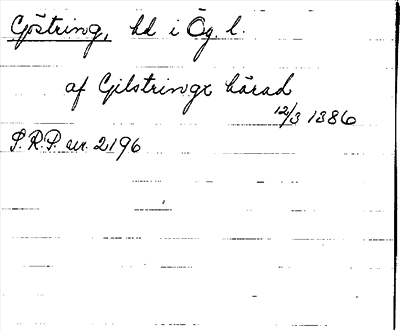 Göstring, hd i Ög. l.
af Gilstringx härad
12/3 1386
S.R.P. nr. 2196